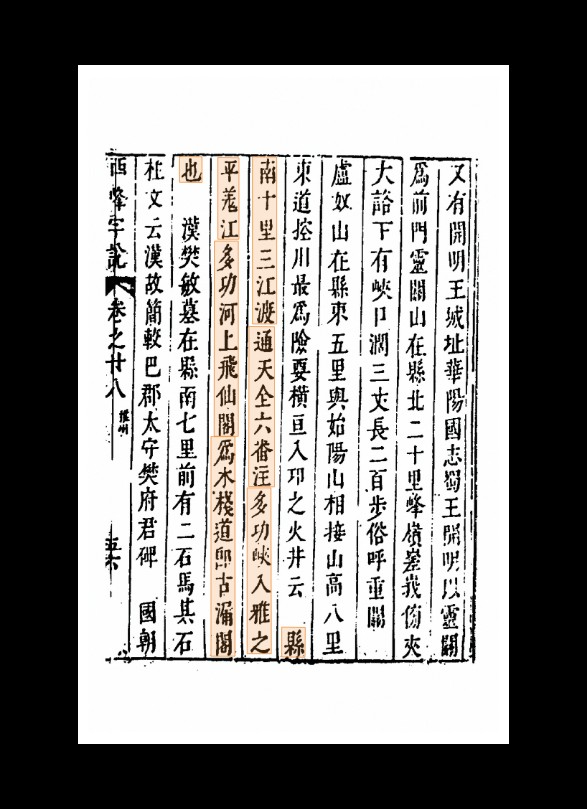 又有開明王城址華陽國志蜀王開明以靈關
爲前門靈關山在縣北二十里峰嶺嵯峩傍夾
大谽下有峽口濶三丈長二百步俗呼重關
盧奴山在縣東五里與始陽山相接山高八里
東道控川最爲險要橫亘入卭之火井云　縣
南十里三江渡通天全六番注多功峽入雅之
平羌江多功河上飛仙閣爲木棧道卽古漏閣
也　漢樊敏墓在縣南七里前有二石馬其石
柱文云漢故簡較巴郡太守樊府君碑　國朝
西峰字說 卷之廿八 雅州 五六